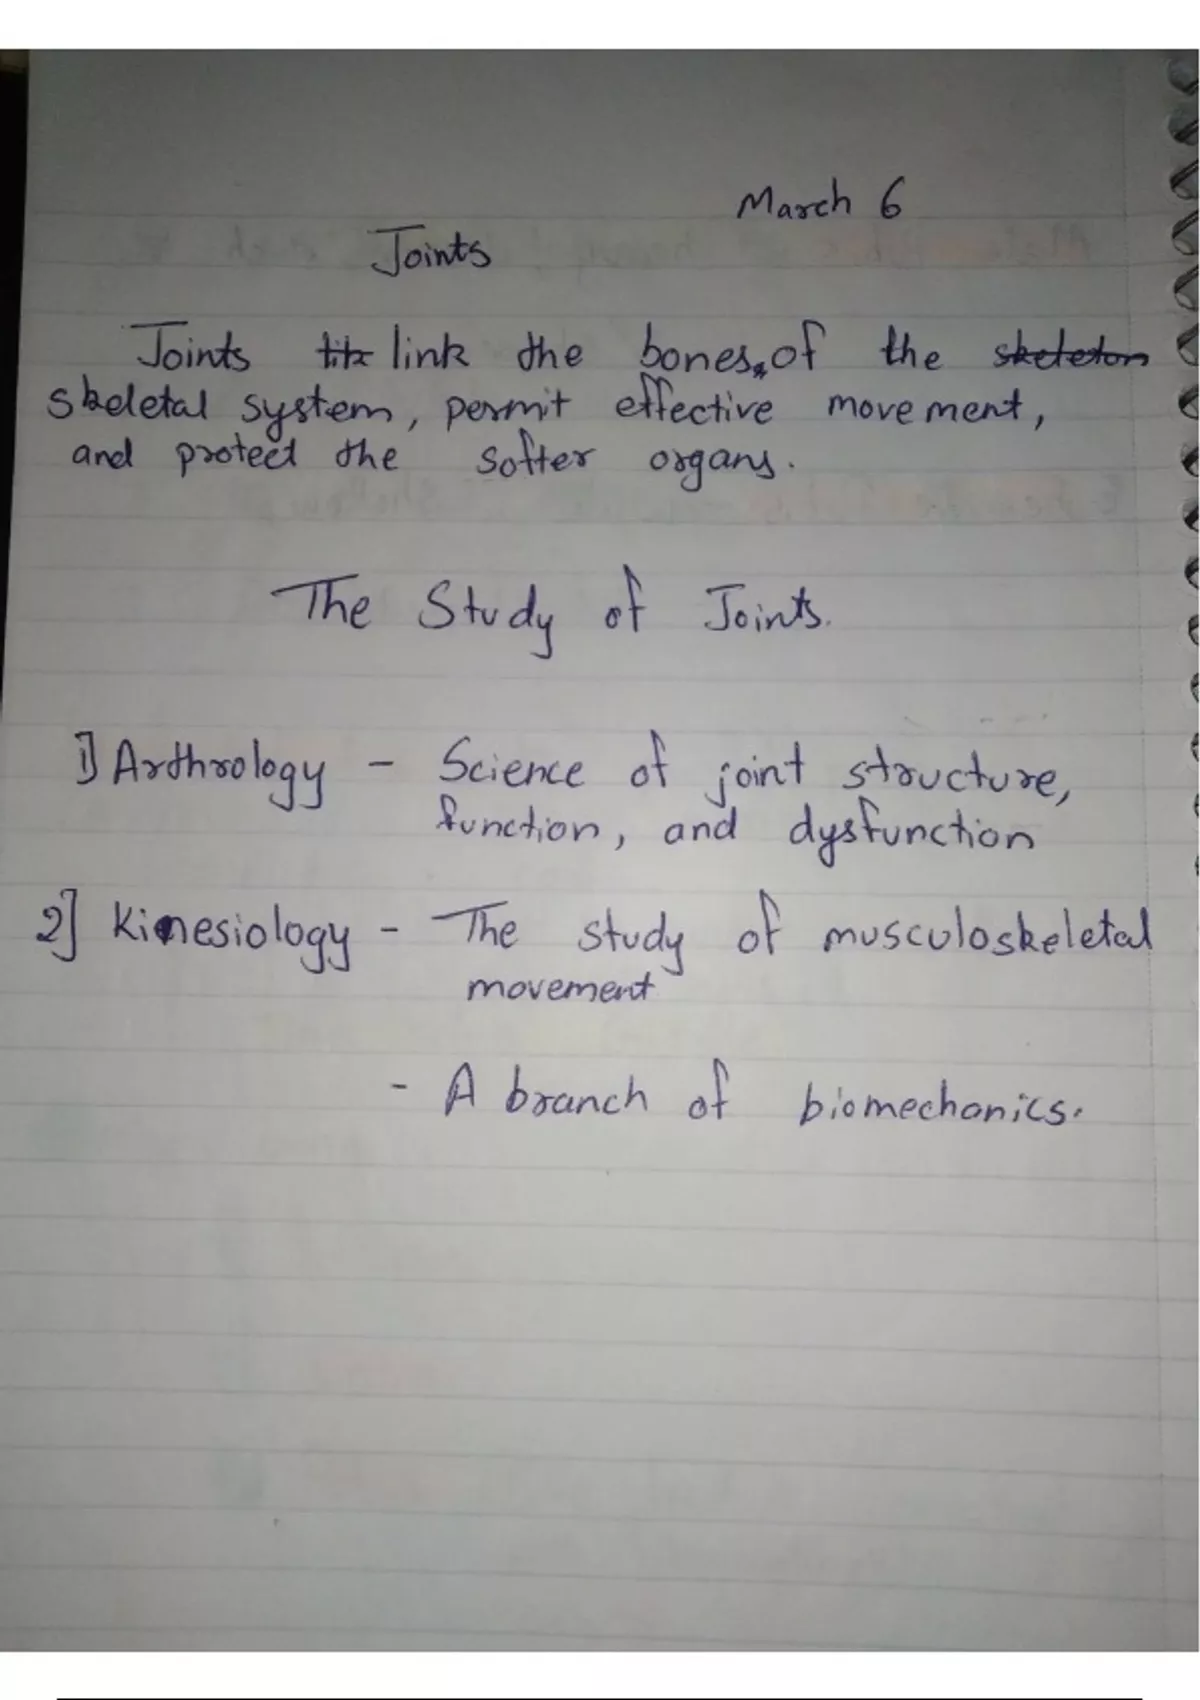 March 6
Joints
Joints link the bones of the skeleton
skeletal system, permit effective movement,
and protect the softer organs.
The Study of Joints.
1] Arthrology - Science of joint structure,
function, and dysfunction
2] Kinesiology - The study of musculoskeletal
movement
- A branch of biomechanics.